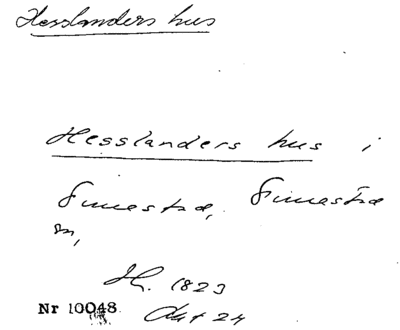 Hesslanders hus
Hesslanders hus i
Fimestad, Fimestad
sn,
Hf. 1823
Nr 10048